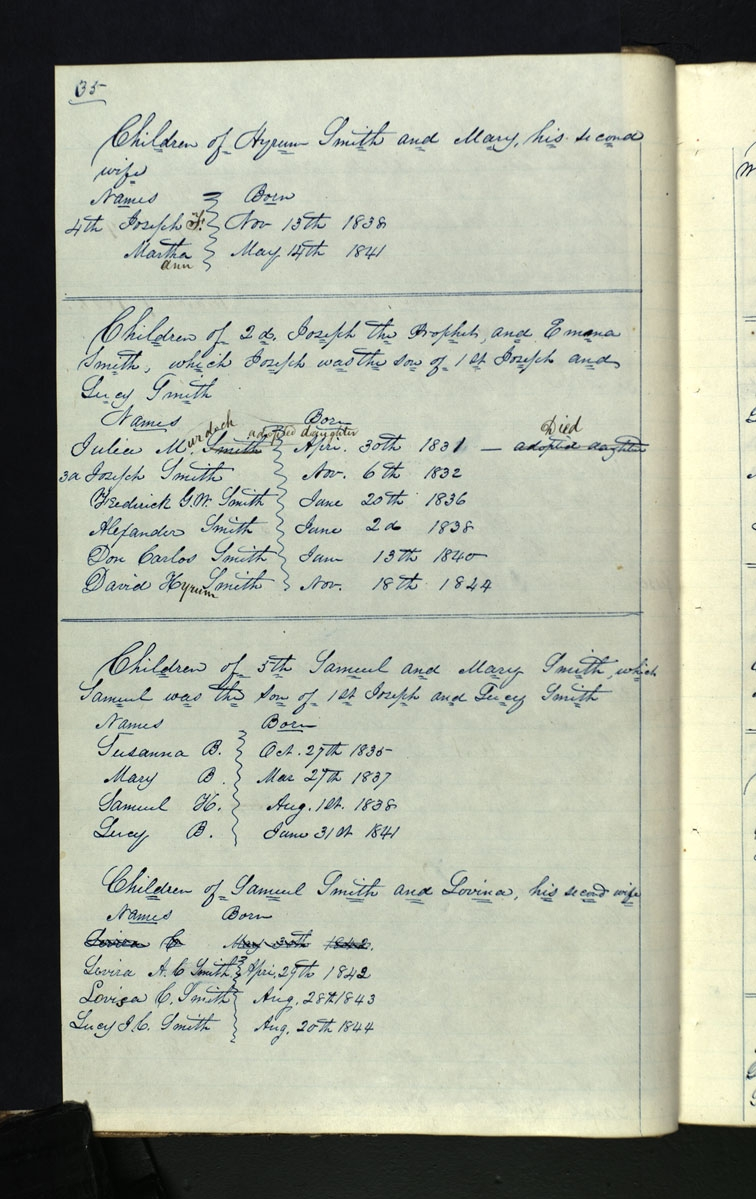 35
Children of Hyrum Smith and Mary, his second
wife
Names Born
4th Joseph F. Nov 13th 1838
Martha May 14th 1841
ann
Children of 2d. Joseph the Prophet, and Emma
Smith, which Joseph was the son of 1st Joseph and
Lucy Smith
Names Born Died
Julia Murdock Smith adopted daughter Apri. 30th 1831 — adopted daughter
3d Joseph Smith Nov. 6th 1832
Frederick G.W. Smith June 20th 1836
Alexander Smith June 2d 1838
Don Carlos Smith June 13th 1840
David Hyrum Smith Nov. 18th 1844
Children of 5th Samuel and Mary Smith, which
Samuel was the son of 1st Joseph and Lucy Smith
Names Born
Susanna B. Oct. 27th 1835
Mary B. Mar 27th 1837
Samuel H. Aug. 1st. 1838
Lucy B. June 31st 1841
Children of Samuel Smith and Lovina, his second wife
Names Born
May 30th 1842.
Lovira A. C Smith Apri. 29th 1842
Lovisa C. Smith Aug. 28th 1843
Lucy J. C. Smith Aug. 20th 1844